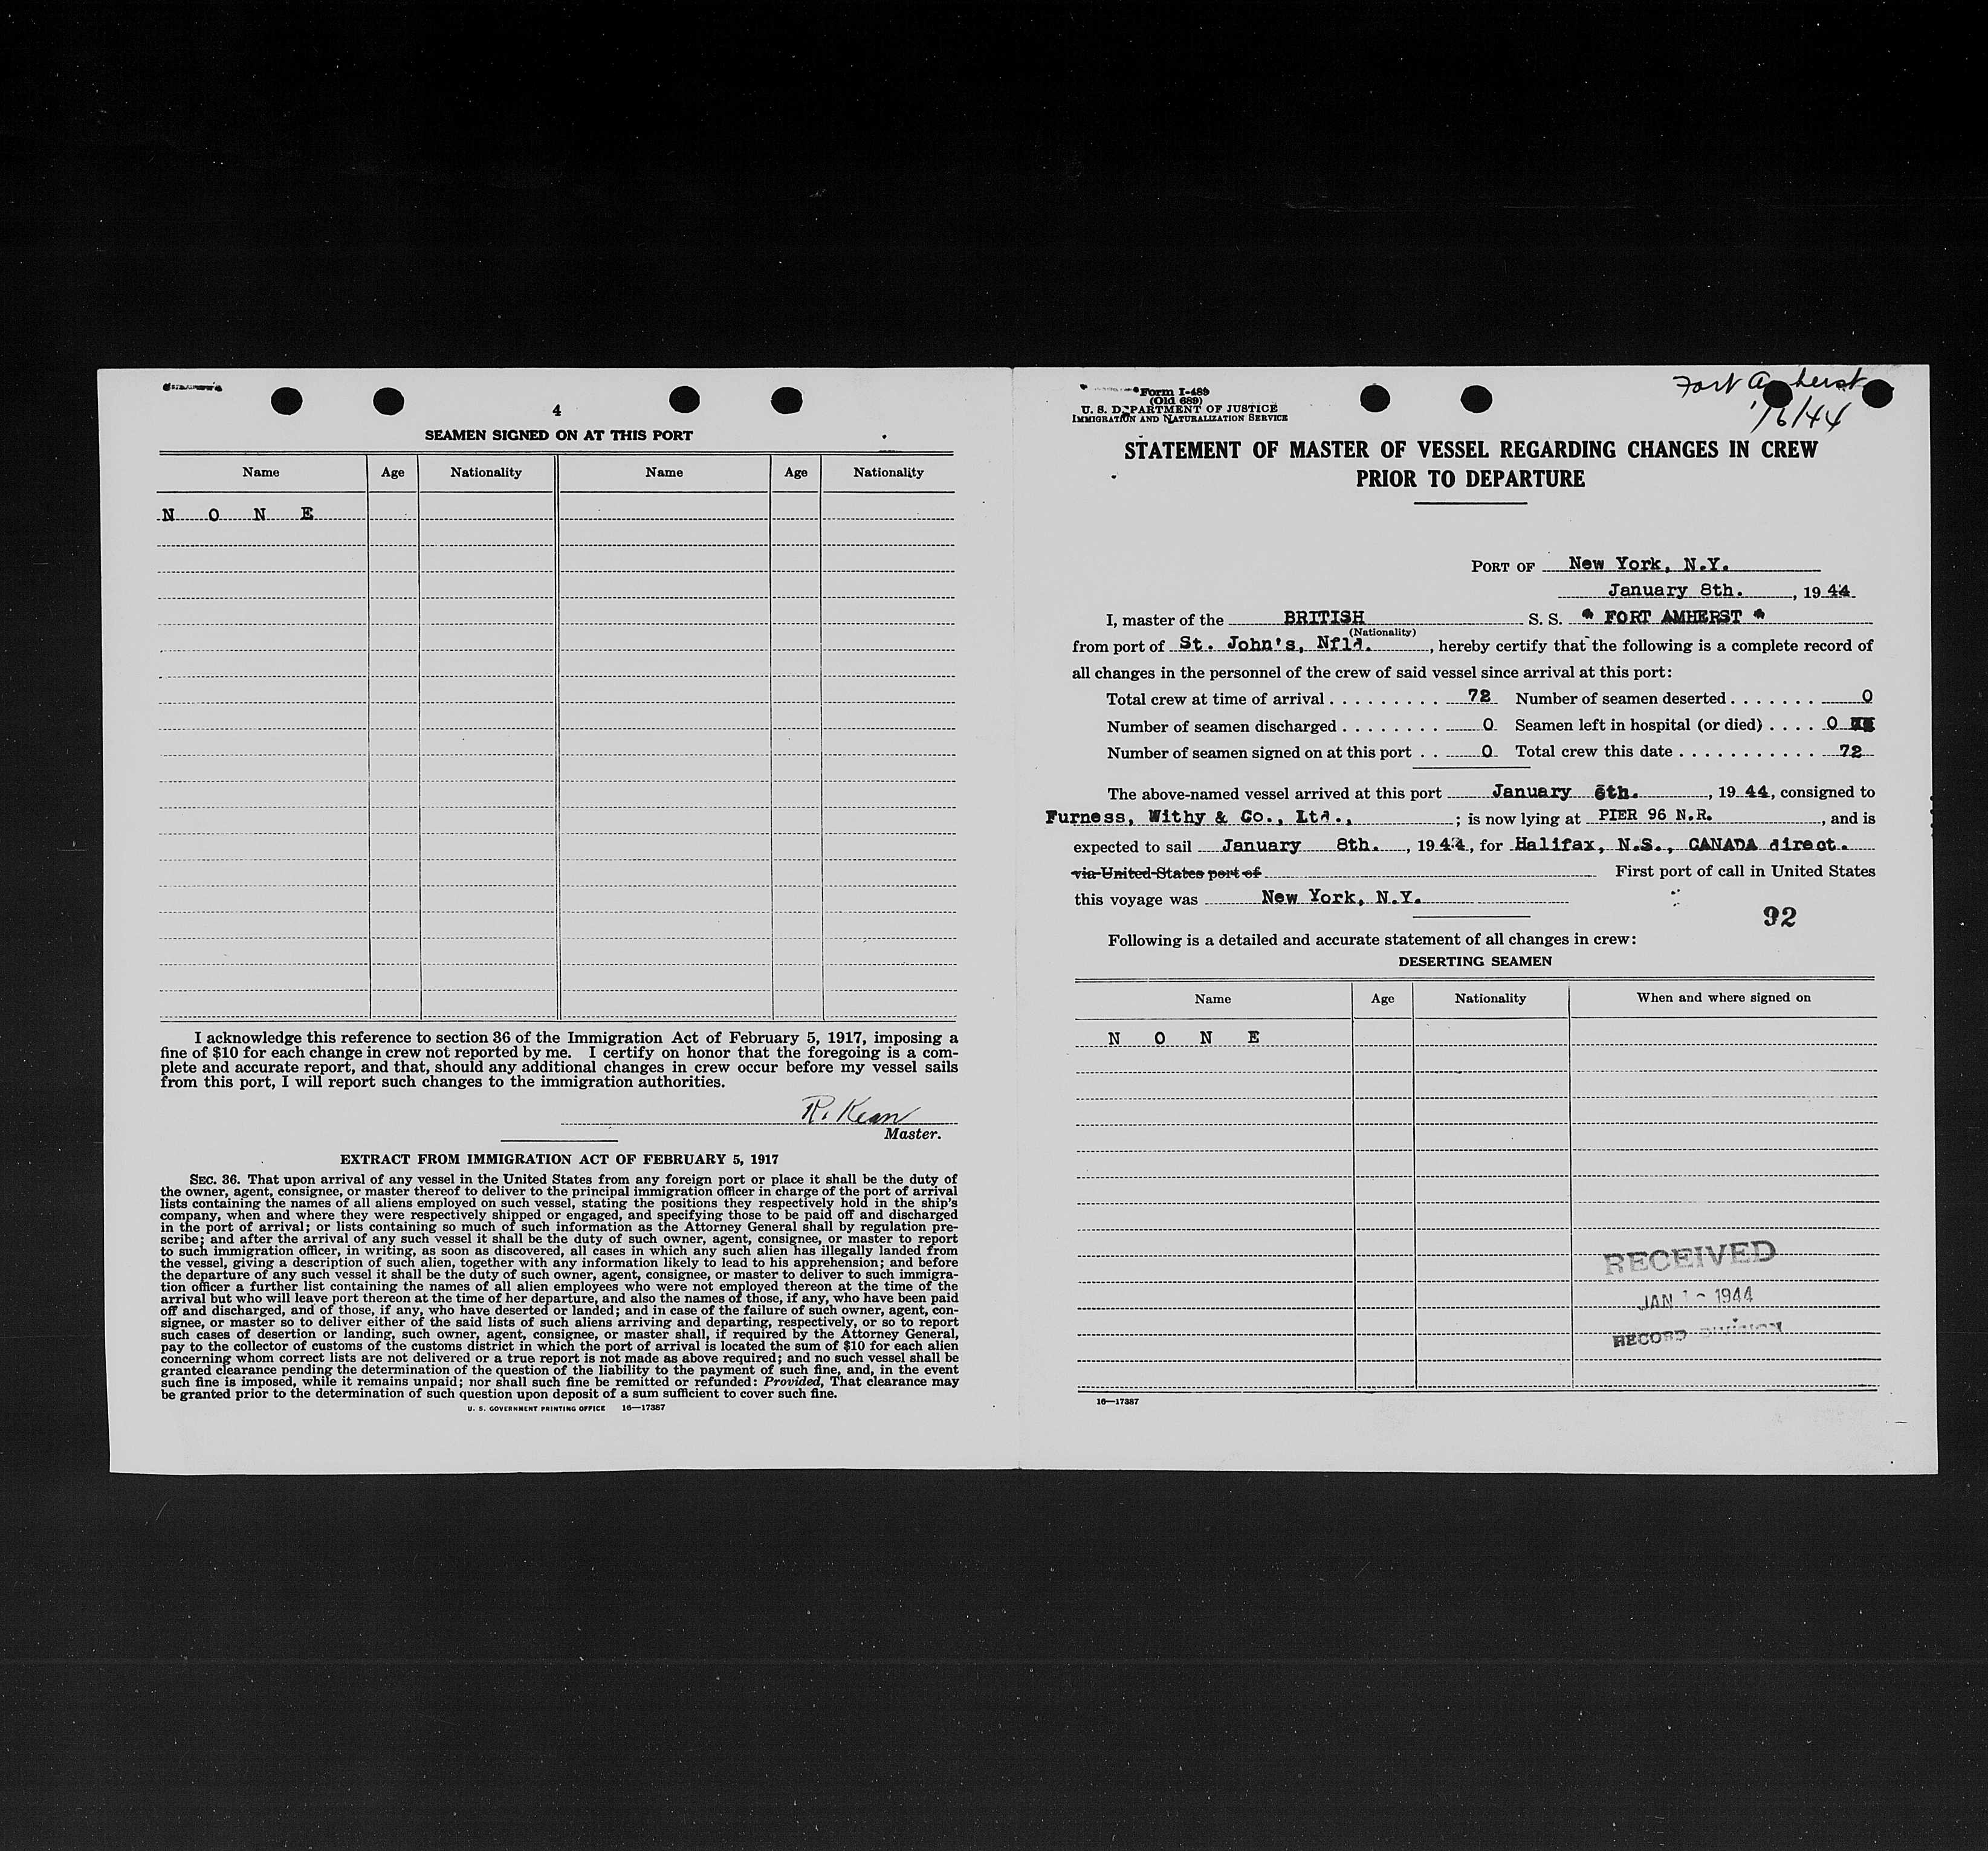 4
SEAMEN SIGNED ON AT THIS PORT
Name Age Nationality Name Age Nationality
N O N E
I acknowledge this reference to section 36 of the Immigration Act of February 5, 1917, imposing a
fine of $10 for each change in crew not reported by me. I certify on honor that the foregoing is a com-
plete and accurate report, and that, should any additional changes in crew occur before my vessel sails
from this port, I will report such changes to the immigration authorities.
R. Kean
Master.
EXTRACT FROM IMMIGRATION ACT OF FEBRUARY 5, 1917
SEC. 36. That upon arrival of any vessel in the United States from any foreign port or place it shall be the duty of
the owner, agent, consignee, or master thereof to deliver to the principal immigration officer in charge of the port of arrival
lists containing the names of all aliens employed on such vessel, stating the positions they respectively hold in the ship's
company, when and where they were respectively shipped or engaged, and specifying those to be paid off and discharged
in the port of arrival; or lists containing so much of such information as the Attorney General shall by regulation pre-
scribe; and after the arrival of any such vessel it shall be the duty of such owner, agent, consignee, or master to report
to such immigration officer, in writing, as soon as discovered, all cases in which any such alien has illegally landed from
the vessel, giving a description of such alien, together with any information likely to lead to his apprehension; and before
the departure of any such vessel it shall be the duty of such owner, agent, consignee, or master to deliver to such immigra-
tion officer a further list containing the names of all alien employees who were not employed thereon at the time of the
arrival but who will leave port thereon at the time of her departure, and also the names of those, if any, who have been paid
off and discharged, and of those, if any, who have deserted or landed; and in case of the failure of such owner, agent, con-
signee, or master so to deliver either of the said lists of such aliens arriving and departing, respectively, or so to report
such cases of desertion or landing, such owner, agent, consignee, or master shall, if required by the Attorney General,
pay to the collector of customs of the customs district in which the port of arrival is located the sum of $10 for each alien
concerning whom correct lists are not delivered or a true report is not made as above required; and no such vessel shall be
granted clearance pending the determination of the question of the liability to the payment of such fine, and, in the event
such fine is imposed, while it remains unpaid; nor shall such fine be remitted or refunded: Provided, That clearance may
be granted prior to the determination of such question upon deposit of a sum sufficient to cover such fine.
U. S. GOVERNMENT PRINTING OFFICE 16—17387
Form I-489
(Old 689)
U. S. DEPARTMENT OF JUSTICE
IMMIGRATION AND NATURALIZATION SERVICE
Fort Amherst
1/6/44
STATEMENT OF MASTER OF VESSEL REGARDING CHANGES IN CREW
PRIOR TO DEPARTURE
PORT OF New York, N.Y.
January 8th., 1944
I, master of the BRITISH S. S. " FORT AMHERST "
(Nationality)
from port of St. John's, Nfld., hereby certify that the following is a complete record of
all changes in the personnel of the crew of said vessel since arrival at this port:
Total crew at time of arrival . . . . . . . . . 72 Number of seamen deserted . . . . . . . 0
Number of seamen discharged . . . . . . . . 0 Seamen left in hospital (or died) . . . . 0
Number of seamen signed on at this port . . 0 Total crew this date . . . . . . . . . . . . 72
The above-named vessel arrived at this port January 6th., 1944, consigned to
Furness, Withy & Co., Ltd., ; is now lying at PIER 96 N.R., and is
expected to sail January 8th., 1944, for Halifax, N.S., CANADA direct.
via United States port of First port of call in United States
this voyage was New York, N.Y.
92
Following is a detailed and accurate statement of all changes in crew:
DESERTING SEAMEN
Name Age Nationality When and where signed on
N O N E
RECEIVED
JAN 1944
RECORD DIVISION
16—17387